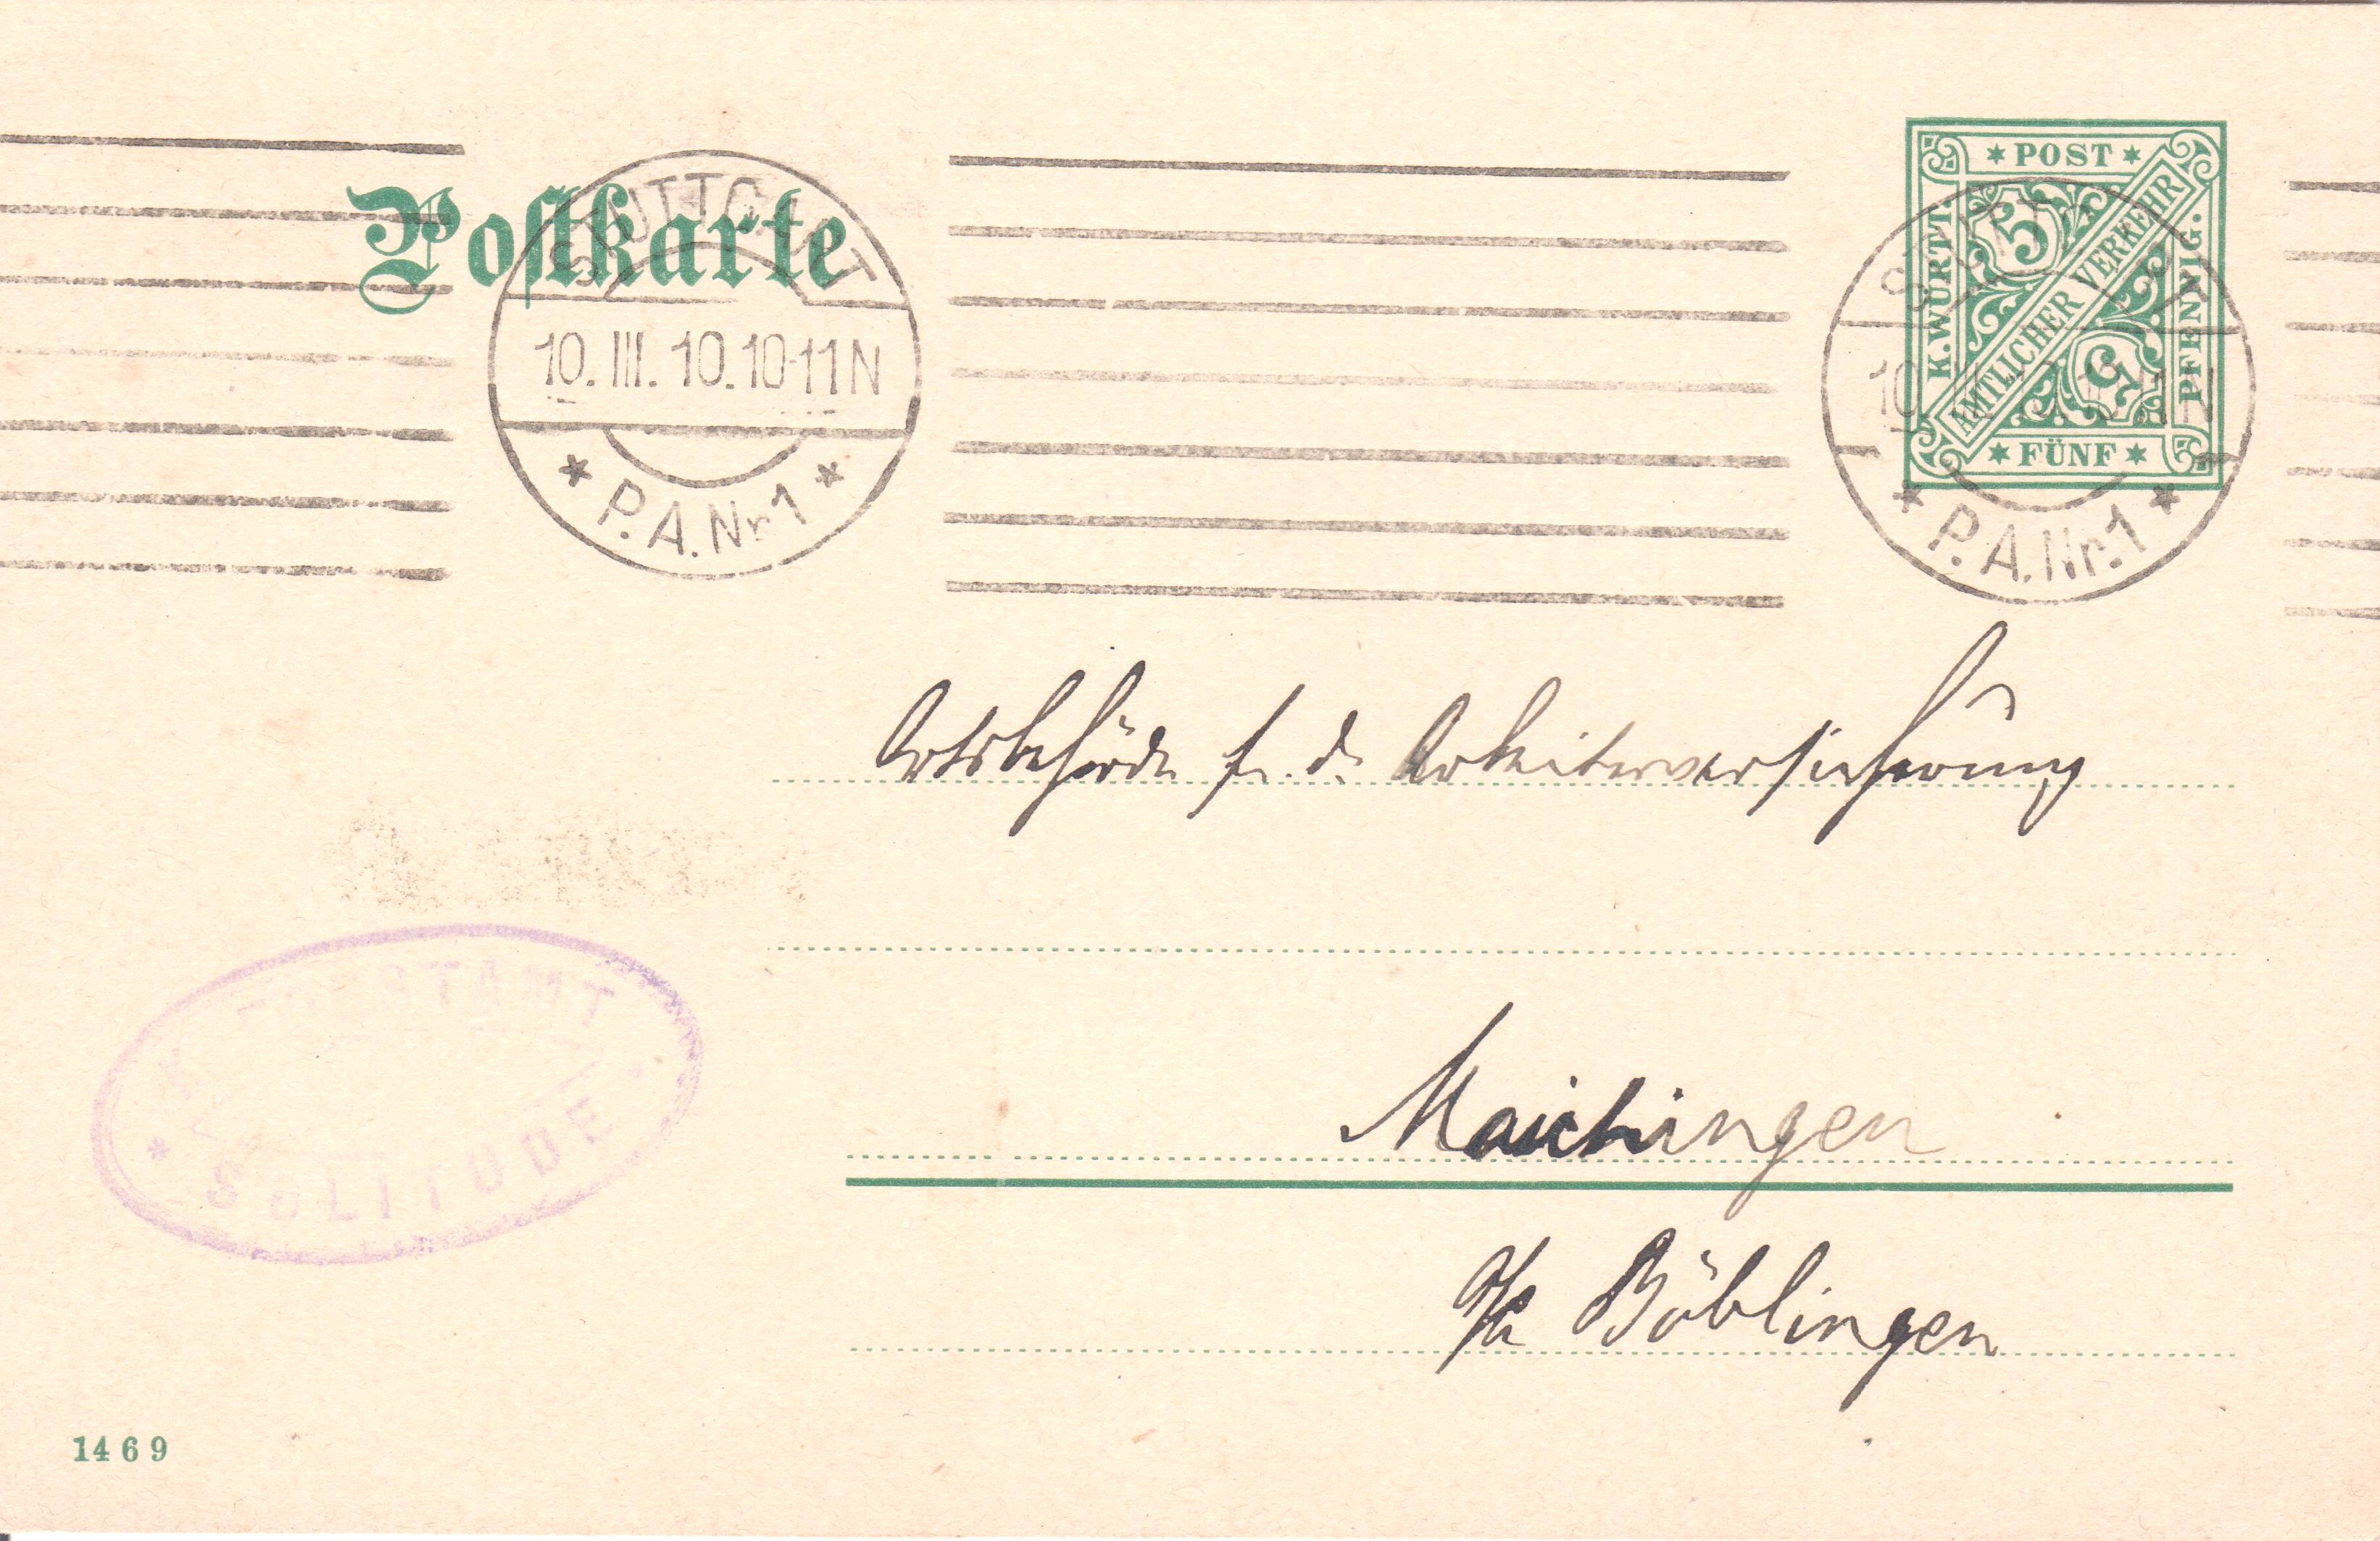 Postkarte
STUTTGART
10. III. 10. 10-11 N
* P.A. Nr. 1 *
* POST *
K. WÜRTT.
5
AMTLICHER VERKEHR
5
PFENNIG.
* FÜNF *
* P.A. Nr. 1 *
Ortsbehörde f. d. Arbeiterversicherung
Maichingen
Böblingen
K. FORSTAMT
* SOLITUDE
1469